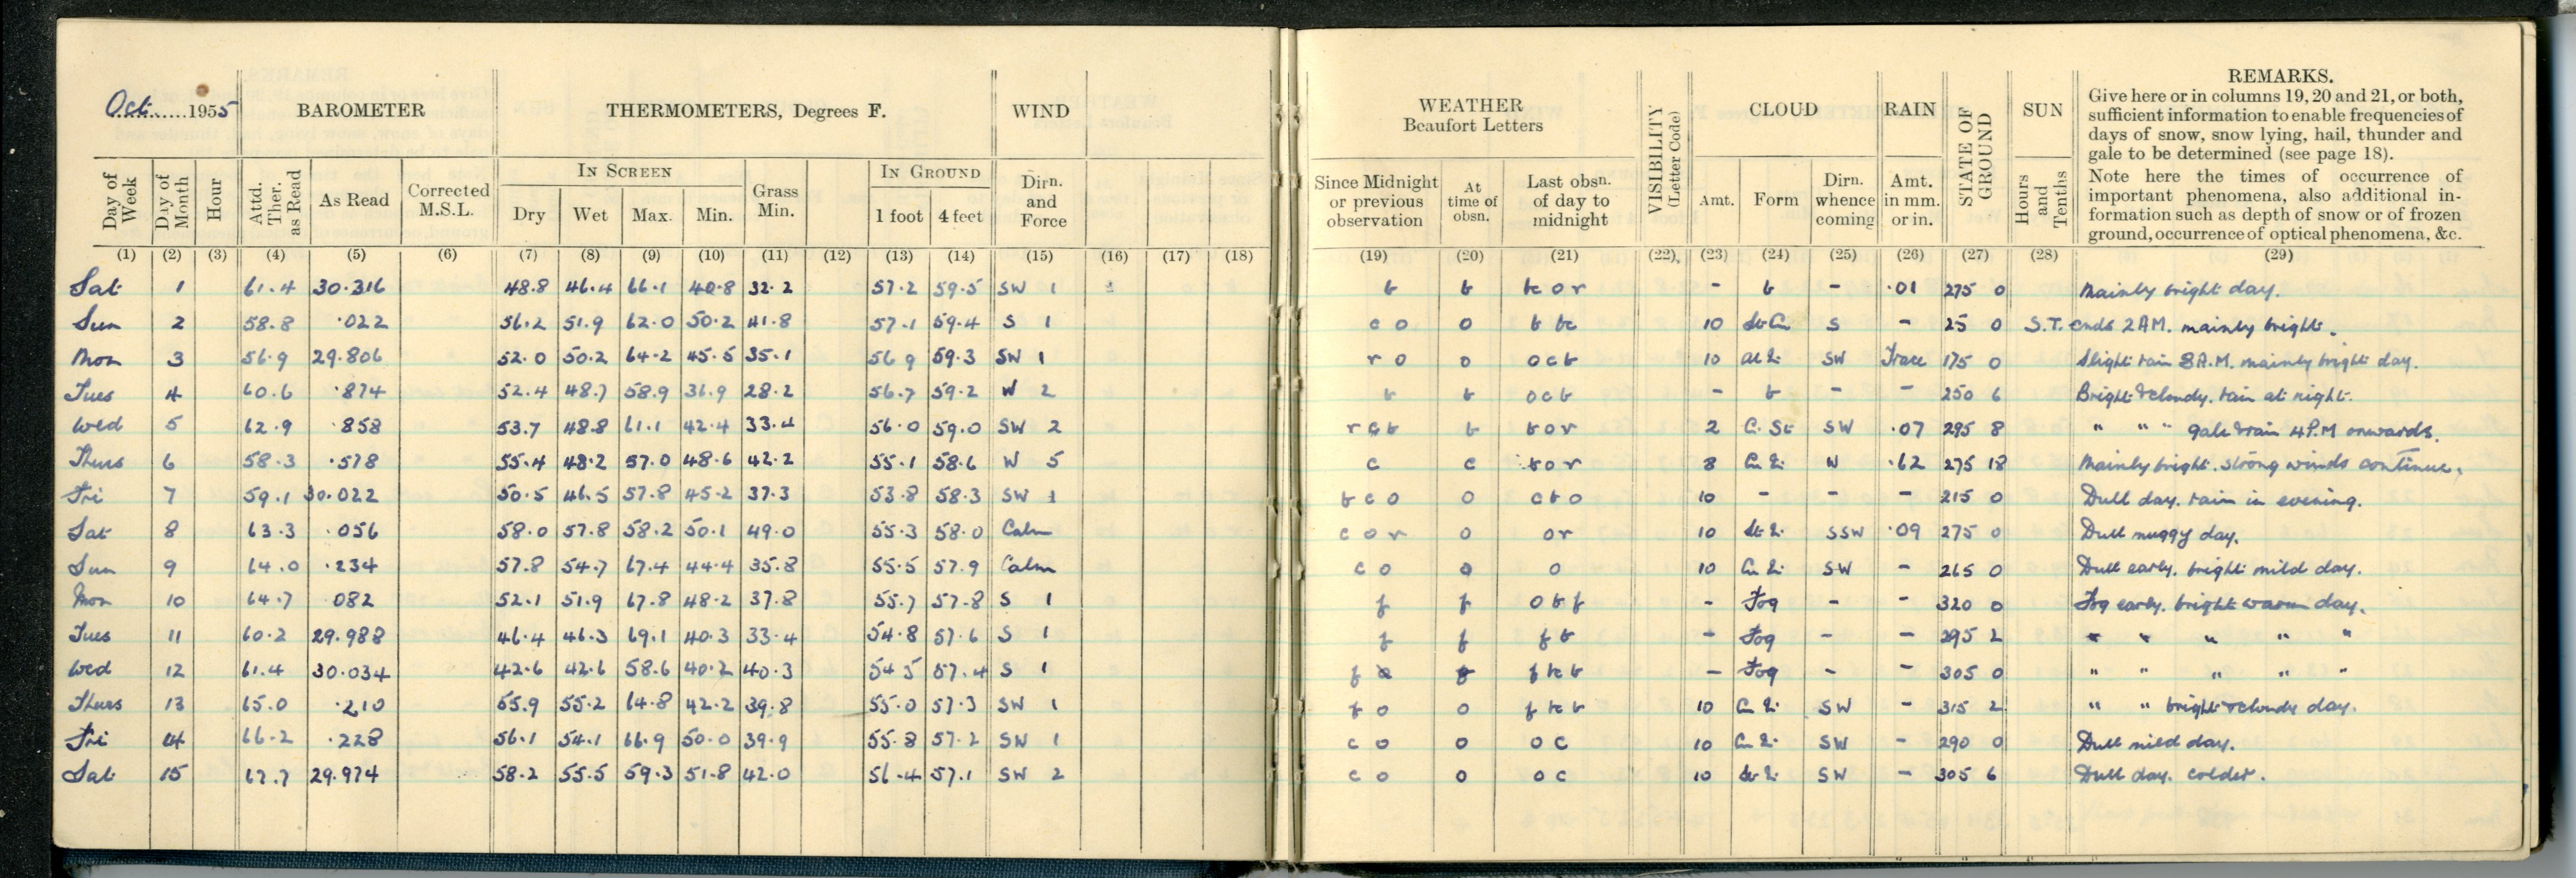 Oct. 1955 BAROMETER THERMOMETERS, Degrees F. WIND
Day of Week Day of Month Hour Attd. Ther. as Read As Read Corrected M.S.L. IN SCREEN Dry Wet Max. Min. Grass Min. IN GROUND 1 foot 4 feet Dirn. and Force
(1) (2) (3) (4) (5) (6) (7) (8) (9) (10) (11) (12) (13) (14) (15) (16) (17) (18)
Sat 1 61.4 30.316 48.8 46.4 66.1 40.8 32.2 57.2 59.5 SW 1
Sun 2 58.8 .022 56.2 51.9 62.0 50.2 41.8 57.1 59.4 S 1
Mon 3 56.9 29.806 52.0 50.2 64.2 45.5 35.1 56 9 59.3 SW 1
Tues 4 60.6 .874 52.4 48.7 58.9 36.9 28.2 56.7 59.2 W 2
Wed 5 62.9 .858 53.7 48.8 61.1 42.4 33.4 56.0 59.0 SW 2
Thurs 6 58.3 .578 55.4 48.2 57.0 48.6 42.2 55.1 58.6 W 5
Fri 7 59.1 30.022 50.5 46.5 57.8 45.2 37.3 53.8 58.3 SW 1
Sat 8 63.3 .056 58.0 57.8 58.2 50.1 49.0 55.3 58.0 Calm
Sun 9 64.0 .234 57.8 54.7 67.4 44.4 35.8 55.5 57.9 Calm
Mon 10 64.7 082 52.1 51.9 67.8 48.2 37.8 55.7 57.8 S 1
Tues 11 60.2 29.988 46.4 46.3 69.1 40.3 33.4 54.8 57.6 S 1
Wed 12 61.4 30.034 42.6 42.6 58.6 40.2 40.3 54 5 57.4 S 1
Thurs 13 65.0 .210 55.9 55.2 64.8 42.2 39.8 55.0 57.3 SW 1
Fri 14 66.2 .228 56.1 54.1 66.9 50.0 39.9 55.8 57.2 SW 1
Sat 15 67.7 29.974 58.2 55.5 59.3 51.8 42.0 56.4 57.1 SW 2
WEATHER Beaufort Letters VISIBILITY (Letter Code) CLOUD RAIN STATE OF GROUND SUN REMARKS.
Give here or in columns 19, 20 and 21, or both,
sufficient information to enable frequencies of
days of snow, snow lying, hail, thunder and
gale to be determined (see page 18).
Note here the times of occurrence of
important phenomena, also additional in-
formation such as depth of snow or of frozen
ground, occurrence of optical phenomena, &c.
Since Midnight or previous observation At time of obsn. Last obsn. of day to midnight Amt. Form Dirn. whence coming Amt. in mm. or in. Hours and Tenths
(19) (20) (21) (22) (23) (24) (25) (26) (27) (28) (29)
b b bc o r - b - .01 275 0 Mainly bright day.
c o o b bc 10 St Cu S - 25 0 S.T. ends 2 AM. mainly bright.
r o o o c b 10 SW Trace 175 0 Slight rain 8 A.M. mainly bright day.
b b o c b - b - - 250 6 Bright & cloudy. rain at night.
r c b b b o r 2 C. St SW .07 295 8 " " " gale & rain 4 P.M onwards.
c c b o r 8 W .62 275 18 Mainly bright. strong winds continue.
b c o o c b o 10 - - - 215 0 Dull day. rain in evening.
c o r o o r 10 SSW .09 275 0 Dull muggy day.
c o o o 10 SW - 265 0 Dull early. bright mild day.
f f o b f - Fog - - 320 0 Fog early. bright warm day.
f f f b - Fog - - 295 2 " " " " "
f f bc b - Fog - - 305 0 " " " " "
f o o f bc b 10 SW - 315 2 " " bright & cloudy day.
c o o o c 10 SW - 290 0 Dull mild day.
c o o o c 10 SW - 305 6 Dull day. colder.